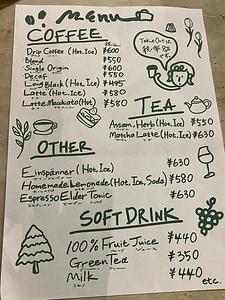 MENU
COFFEE
Drip Coffee (Hot. Ice) ¥600
Blend ¥550
Single Origin ¥600
Decaf ¥580
Long Black (Hot. Ice) ¥495
Latte (Hot. Ice) ¥580
Latte Macchiato (Hot) ¥580
Take Out は
TEA
Assam. Herb (Hot. Ice) ¥550
Matcha Latte (Hot. Ice) ¥630
OTHER
Einspänner (Hot. Ice) ¥630
Homemade Lemonade (Hot. Ice. Soda) ¥580
Espresso Elder Tonic ¥630
SOFT DRINK
100% Fruit Juice ¥440
Green Tea ¥350
Milk ¥440
etc.